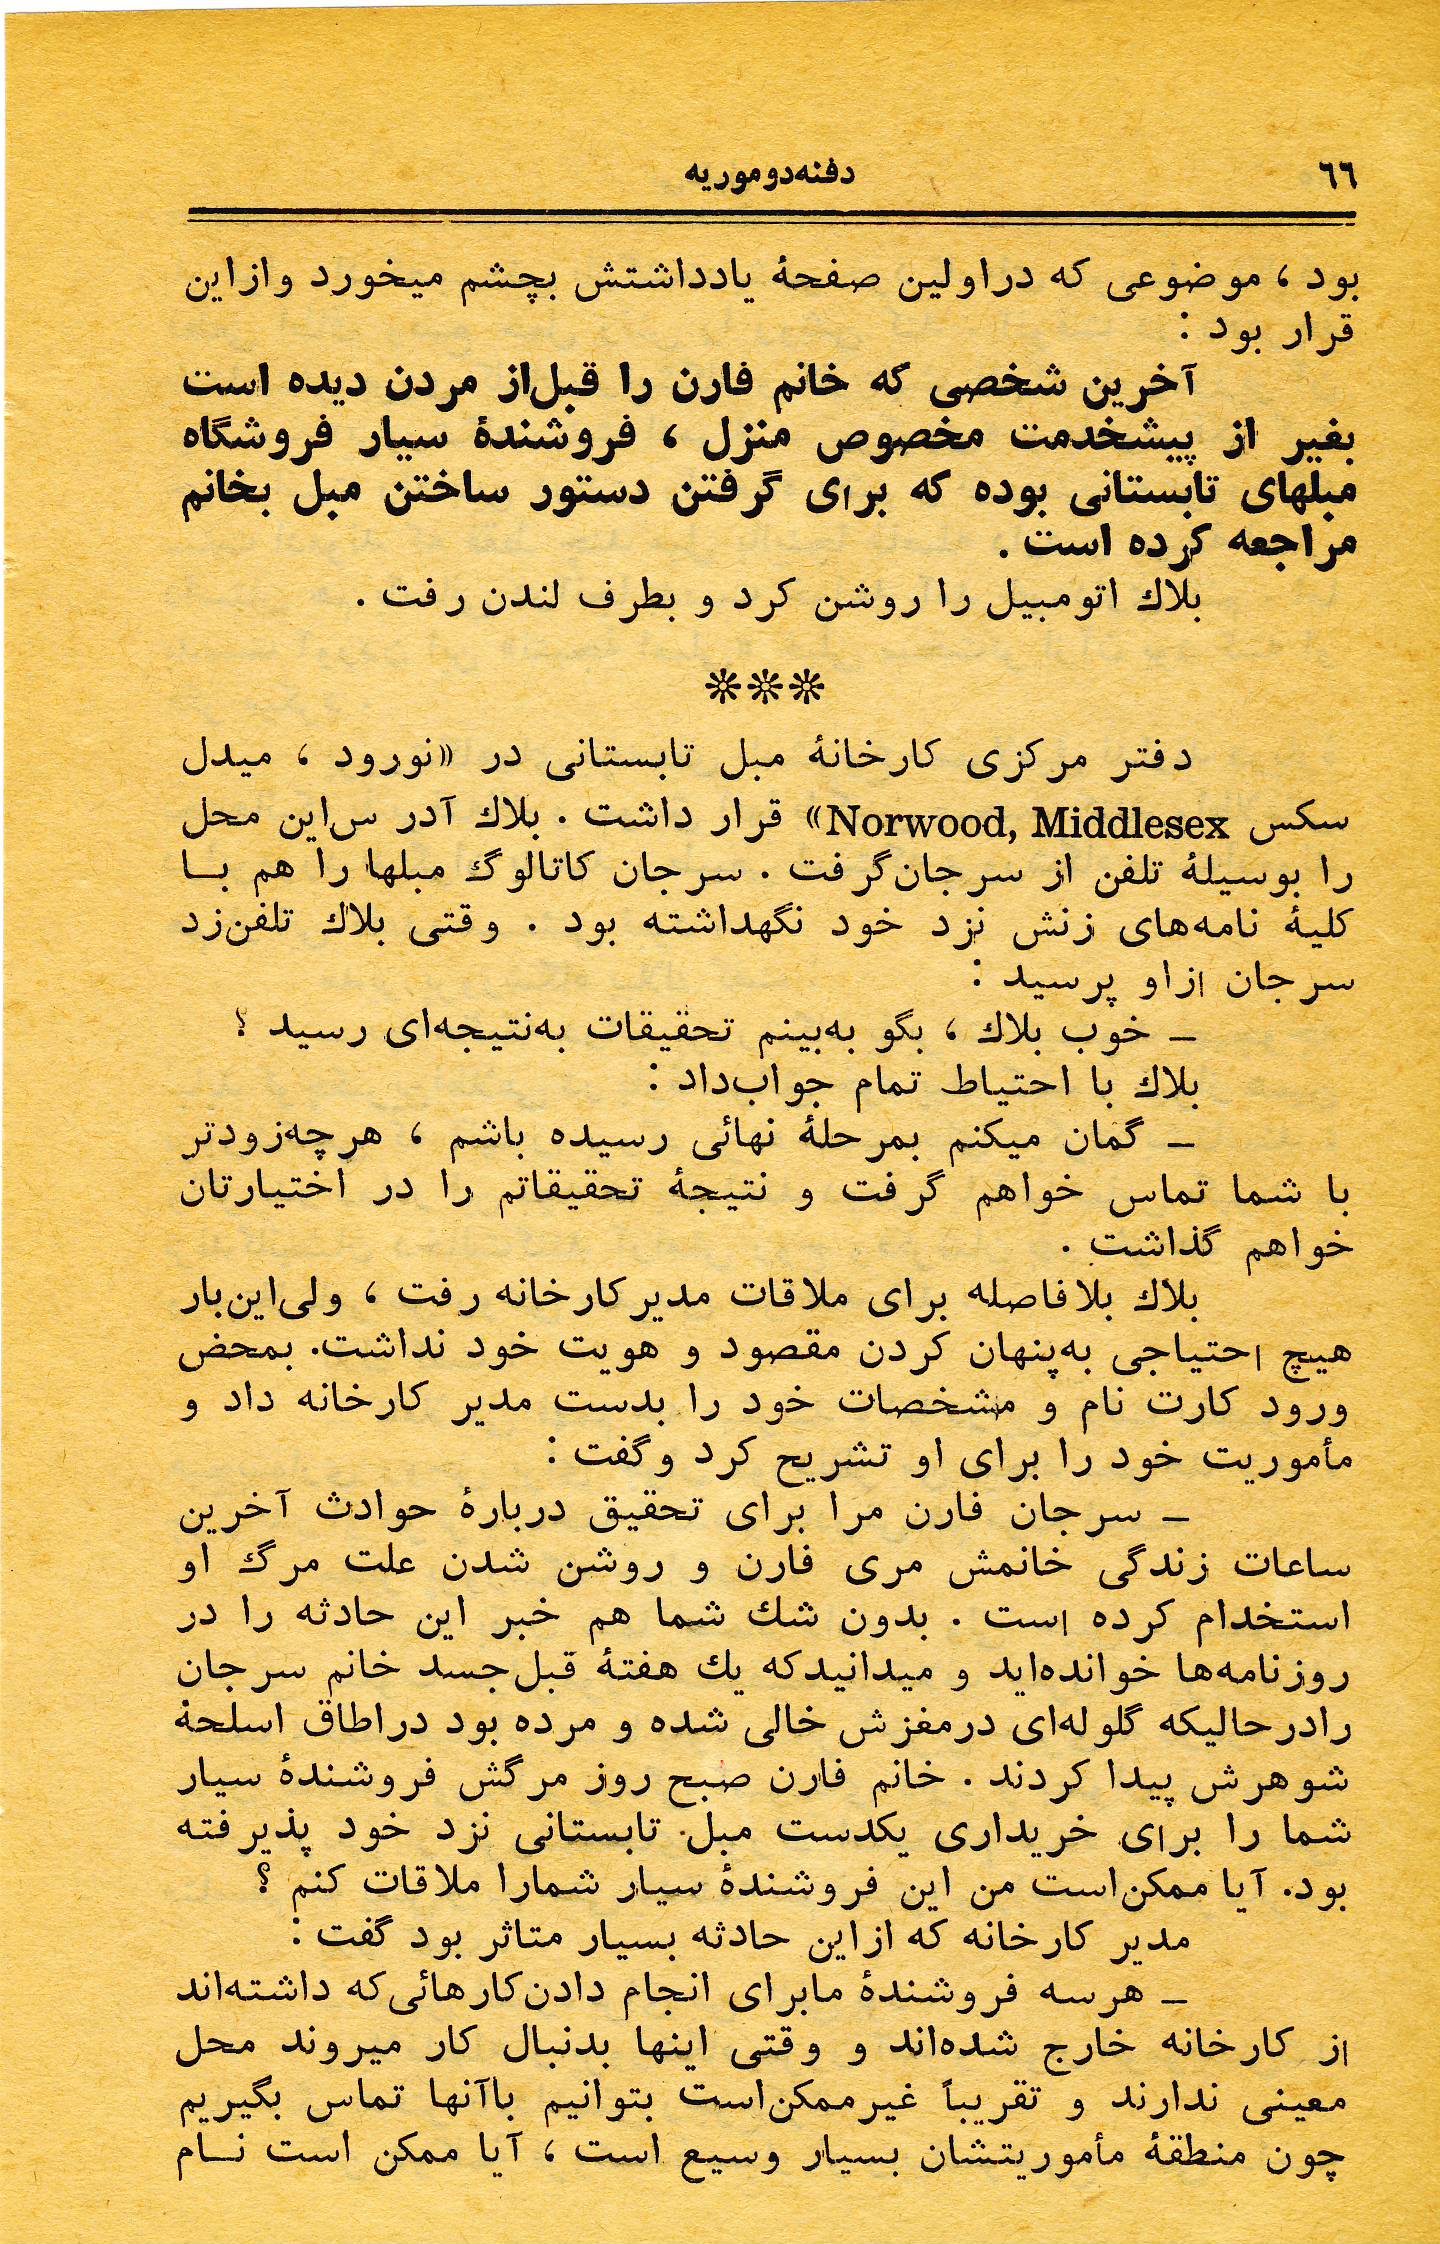 ٦٦
دفنه‌دوموریه
بود ، موضوعی که دراولین صفحهٔ یادداشتش بچشم میخورد وازاین
قرار بود :
آخرین شخصی که خانم فارن را قبل‌از مردن دیده است
بغیر از پیشخدمت مخصوص منزل ، فروشندهٔ سیار فروشگاه
مبلهای تابستانی بوده که برای گرفتن دستور ساختن مبل بخانم
مراجعه کرده است .
بلاك اتومبیل را روشن کرد و بطرف لندن رفت .
***
دفتر مرکزی کارخانهٔ مبل تابستانی در «نورود ، میدل
سکس Norwood, Middlesex» قرار داشت . بلاك آدر س‌این محل
را بوسیلهٔ تلفن از سرجان‌گرفت . سرجان کاتالوگ مبلها را هم بـا
کلیهٔ نامه‌های زنش نزد خود نگهداشته بود . وقتی بلاك تلفن‌زد
سرجان ازاو پرسید :
ـ خوب بلاك ، بگو به‌بینم تحقیقات به‌نتیجه‌ای رسید ؟
بلاك با احتیاط تمام جواب‌داد :
ـ گمان میکنم بمرحلهٔ نهائی رسیده باشم ، هرچه‌زودتر
با شما تماس خواهم گرفت و نتیجهٔ تحقیقاتم را در اختیارتان
خواهم گذاشت .
بلاك بلافاصله برای ملاقات مدیرکارخانه رفت ، ولی‌این‌بار
هیچ احتیاجی به‌پنهان کردن مقصود و هویت خود نداشت. بمحض
ورود کارت نام و مشخصات خود را بدست مدیر کارخانه داد و
مأموریت خود را برای او تشریح کرد وگفت :
ـ سرجان فارن مرا برای تحقیق دربارهٔ حوادث آخرین
ساعات زندگی خانمش مری فارن و روشن شدن علت مرگ او
استخدام کرده است . بدون شك شما هم خبر این حادثه را در
روزنامه‌ها خوانده‌اید و میدانیدکه یك هفتهٔ قبل‌جسد خانم سرجان
رادرحالیکه گلوله‌ای درمغزش خالی شده و مرده بود دراطاق اسلحهٔ
شوهرش پیدا کردند . خانم فارن صبح روز مرگش فروشندهٔ سیار
شما را برای خریداری یکدست مبل تابستانی نزد خود پذیرفته
بود. آیا ممکن‌است من این فروشندهٔ سیار شمارا ملاقات کنم ؟
مدیر کارخانه که ازاین حادثه بسیار متاثر بود گفت :
ـ هرسه فروشندهٔ مابرای انجام دادن‌کارهائی‌که داشته‌اند
از کارخانه خارج شده‌اند و وقتی اینها بدنبال کار میروند محل
معینی ندارند و تقریباً غیرممکن‌است بتوانیم باآنها تماس بگیریم
چون منطقهٔ مأموریتشان بسیار وسیع است ، آیا ممکن است نـام